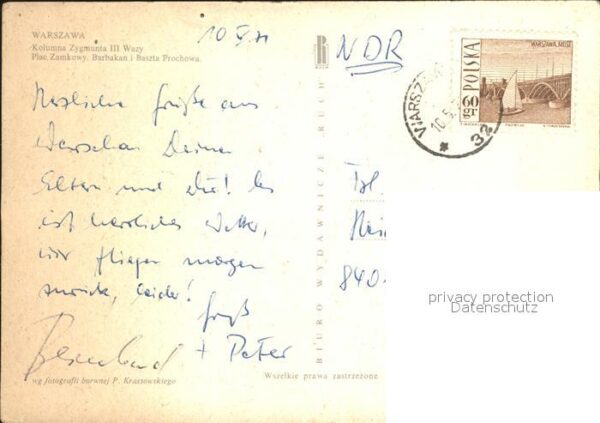 WARSZAWA
Kolumna Zygmunta III Wazy
Plac Zamkowy. Barbakan i Baszta Prochowa.
10 V 71
NDR
WARSZAWA
10.5.
32
WARSZAWA, MOST
POLSKA
60 gr
Herzliche Grüße aus
Warschau Deinen
Eltern und Dir! Es
ist herrliches Wetter,
wir fliegen morgen
zurück, leider!
Gruß
Bernhard + Peter
840
BIURO WYDAWNICZE RUCH
privacy protection
Datenschutz
wg fotografii barwnej P. Krassowskiego
Wszelkie prawa zastrzeżone